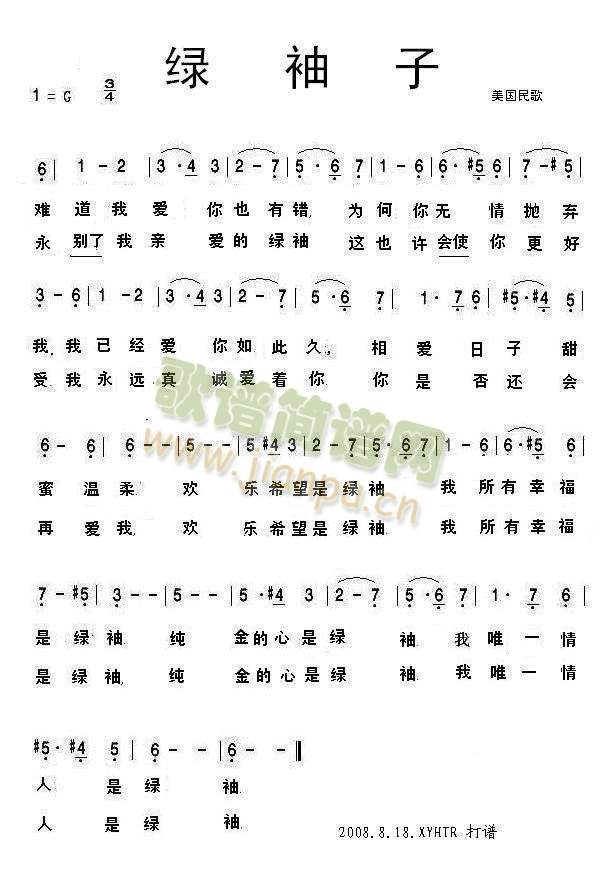 绿 袖 子
1 = G 3/4 美国民歌
6 | 1 - 2 | 3 · 4 3 | 2 - 7 | 5 · 6 7 | 1 - 6 | 6 · #5 6 | 7 - #5 |
难 道 我 爱 你 也 有 错, 为 何 你 无 情 抛 弃
永 别了 我 亲 爱 的 绿 袖 这 也 许 会使 你 更 好
3 - 6 | 1 - 2 | 3 · 4 3 | 2 - 7 | 5 · 6 7 | 1 · 7 6 | #5 · #4 5 |
我, 我 已 经 爱 你 如 此 久, 相 爱 日 子 甜
受, 我 永 远 真 诚 爱 着 你 你 是 否 还 会
6 - 6 | 6 - - | 5 - - | 5 #4 3 | 2 - 7 | 5 · 6 7 | 1 - 6 | 6 · #5 6 |
蜜 温 柔. 欢 乐 希 望 是 绿 袖 我 所 有 幸 福
再 爱 我, 欢 乐 希 望 是 绿 袖. 我 所 有 幸 福
7 - #5 | 3 - - | 5 - - | 5 · #4 3 | 2 - 7 | 5 · 6 7 | 1 · 7 6 |
是 绿 袖, 纯 金 的 心 是 绿 袖. 我 唯 一 情
是 绿 袖, 纯 金 的 心 是 绿 袖. 我 唯 一 情
#5 · #4 5 | 6 - - | 6 - ‖
人 是 绿 袖.
人 是 绿 袖.
2008.8.18.XYHTR 打谱
歌谱简谱网
www.jianpu.cn